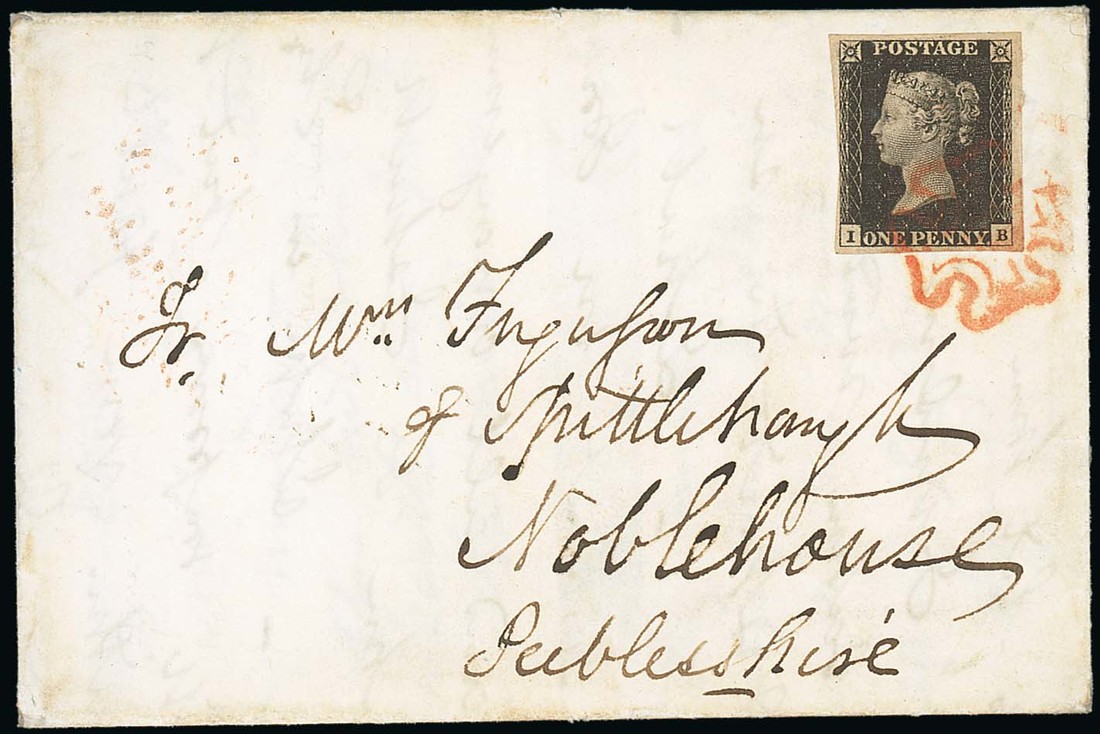 POSTAGE
I ONE PENNY B
Wm Fergusson
of Spittlehaugh
Noblehouse
Peeblesshire